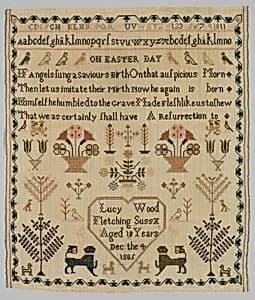 aabcdefghiklmnopqrsstuvwxyzabcdefghiklmno
ON EASTER DAY
If Angels sung a saviours Birth On that auspicious Morn
Then let us imitate their Mirth Now he again is born
Himself he humbled to the Grave Made Flesh like us to shew
That we as certainly shall have A Resurrection to
Lucy Wood
Fletching Sussx
Aged 10 Years
Dec the 4